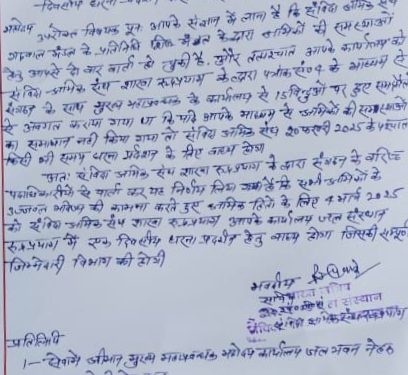 महोदय
उपरोक्त विषयक पूर्व आपके संज्ञान में लाना है कि संविदा श्रमिक संघ
गढ़वाल मंडल के प्रतिनिधि द्वारा श्रमिकों की समस्याओं
हेतु आपसे दो बार वार्ता हो चुकी है, और तत्पश्चात आपके कार्यालय को
संविदा श्रमिक संघ शाखा रूद्रप्रयाग के द्वारा पत्रांक सं० 4 के माध्यम से
के साथ मुख्य महाप्रबंधक के कार्यालय से 15 बिन्दुओं पर हुए समझौते
से अवगत कराया गया था कि यदि आपके माध्यम से श्रमिकों की समस्याओं
का समाधान नहीं किया गया तो संविदा श्रमिक संघ 20 फरवरी 2025 के पश्चात
किसी भी समय धरना प्रदर्शन के लिए बाध्य होगा
अतः संविदा श्रमिक संघ शाखा रूद्रप्रयाग के द्वारा संगठन के वरिष्ठ
पदाधिकारियों से वार्ता कर यह निर्णय लिया गया है कि सभी श्रमिकों के
उज्जवल भविष्य की कामना करते हुए श्रमिक हितों के लिए 4 मार्च 2025
को संविदा श्रमिक संघ शाखा रूद्रप्रयाग आपके कार्यालय जल संस्थान
रूद्रप्रयाग में एक दिवसीय धरना प्रदर्शन हेतु बाध्य होगा जिसकी सम्पूर्ण
जिम्मेदारी विभाग की होगी
भवदीय
संस्थान
प्रतिलिपि
1- सेवामें श्रीमान मुख्य महाप्रबंधक महोदय कार्यालय जल भवन नेहरू